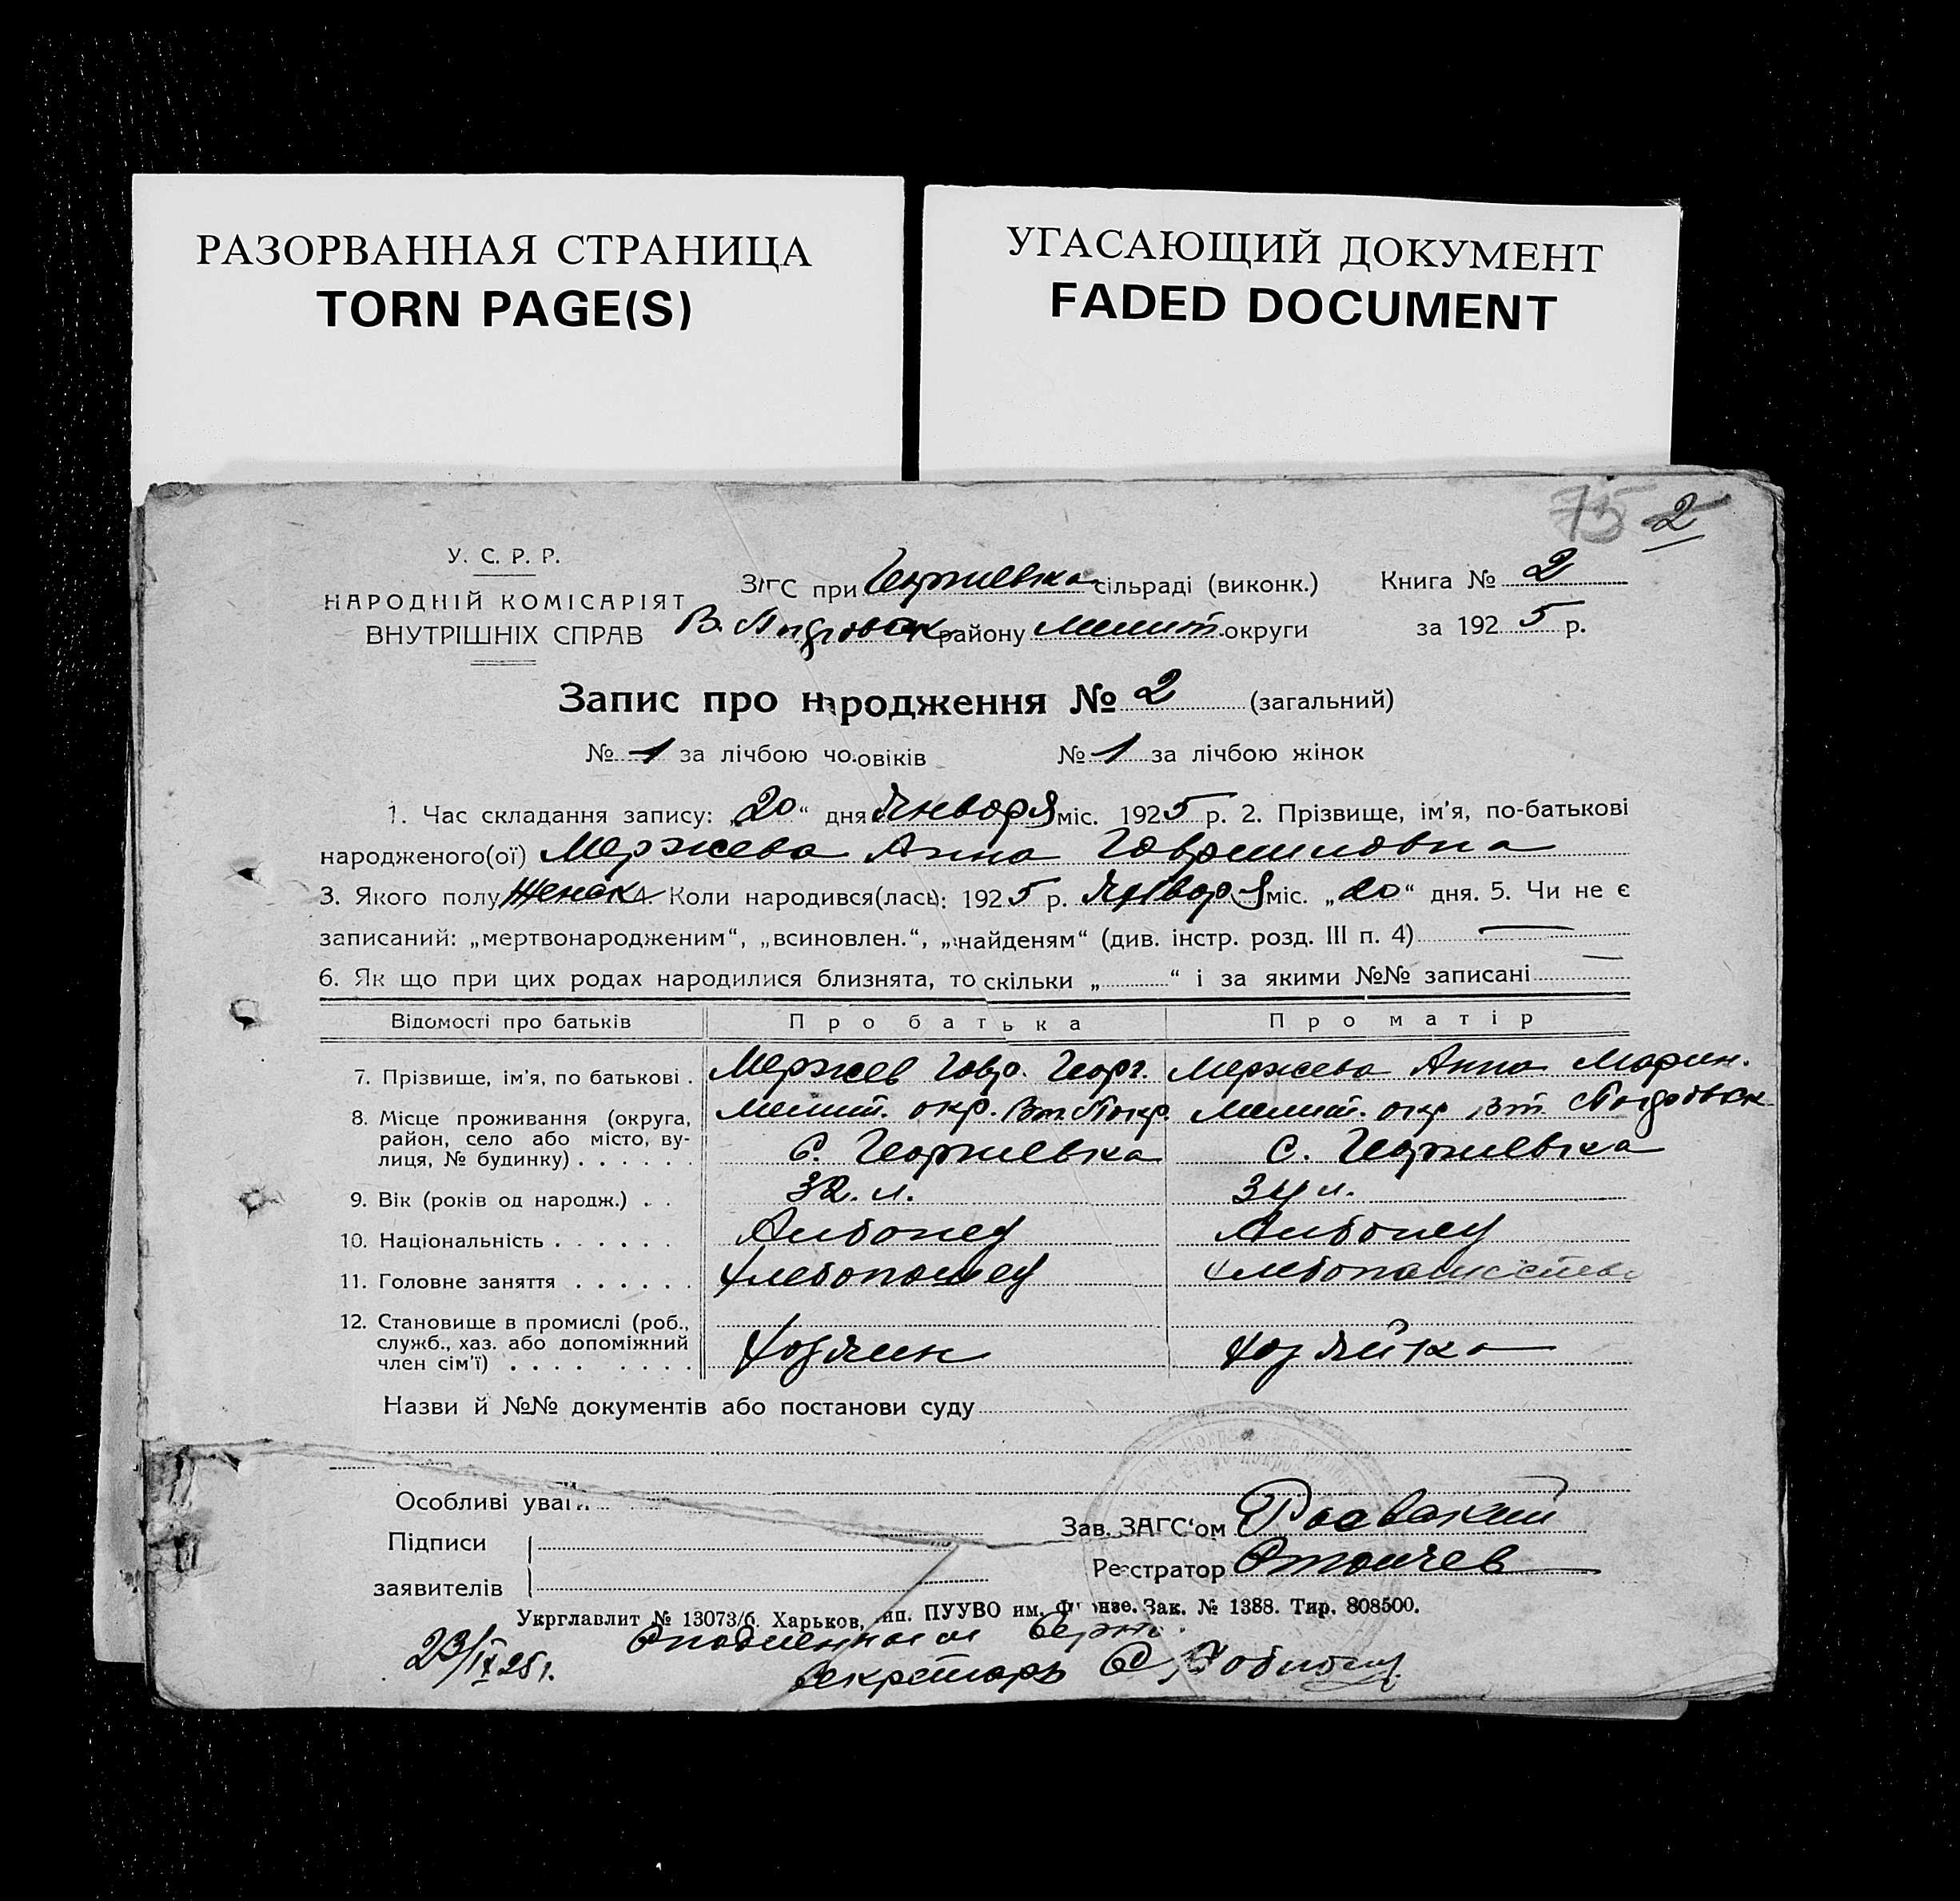 РАЗОРВАННАЯ СТРАНИЦА
TORN PAGE(S)
УГАСАЮЩИЙ ДОКУМЕНТ
FADED DOCUMENT
75 2
У. С. Р. Р.
НАРОДНІЙ КОМІСАРІЯТ
ВНУТРІШНІХ СПРАВ
ЗАГС при Георгиевка сільраді (виконк.)
району Мелит. округи
Книга № 2
за 1925 р.
Запис про народження № 2 (загальний)
№ 1 за лічбою чоловіків № 1 за лічбою жінок
1. Час складання запису: „20“ дня Января міс. 1925 р. 2. Прізвище, ім’я, по-батькові
народженого(ої) Мержева Анна Гавриловна
3. Якого полу Женск 4. Коли народився(лась): 1925 р. Января міс. „20“ дня. 5. Чи не є
записаний: „мертвонародженим“, „всиновлен.“, „знайденям“ (див. інстр. розд. III п. 4) —
6. Як що при цих родах народилися близнята, то скільки „ “ і за якими №№ записані —
Відомості про батьків Про батька Про матір
7. Прізвище, ім’я, по батькові . Мержев Гавр. Георг. Мержева Анна Марин.
8. Місце проживання (округа, Мелит. окр. Вт. Покр. Мелит. окр Вт.
район, село або місто, ву-
лиця, № будинку) . . . . . . С. Георгиевка С. Георгиевка
9. Вік (років од народж.) . . 32. л. 34 л.
10. Національність . . . . . . Албонец Албонец
11. Головне заняття . . . . . . Хлебопашец Хлебопашество
12. Становище в промислі (роб.,
служб., хаз. або допоміжний
член сім’ї) . . . . . . . . Хозяин Хозяйка
Назви й №№ документів або постанови суду
Особливі уваги
Підписи
заявителів
Зав. ЗАГС‘ом
Реєстратор
Укрглавлит № 13073/б. Харьков, тип. ПУУВО им. Фрунзе. Зак. № 1388. Тир. 808500.
23/IX 25 г. Верно.
Секретарь